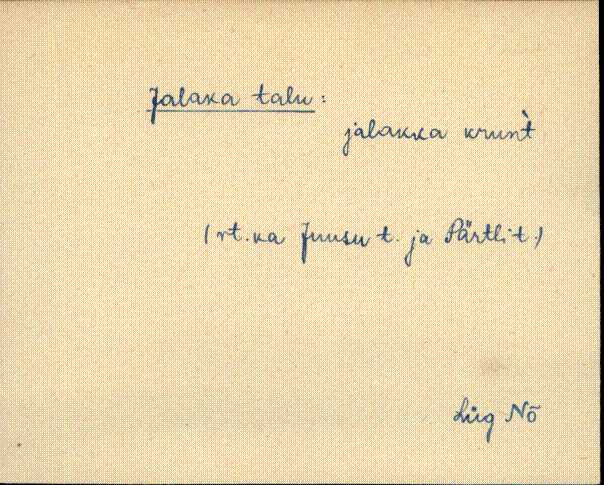 Jalaka talu:
jalakka krunt̀
(vt. ka Juusu t. ja Pärtli t.)
Lüg Nõ